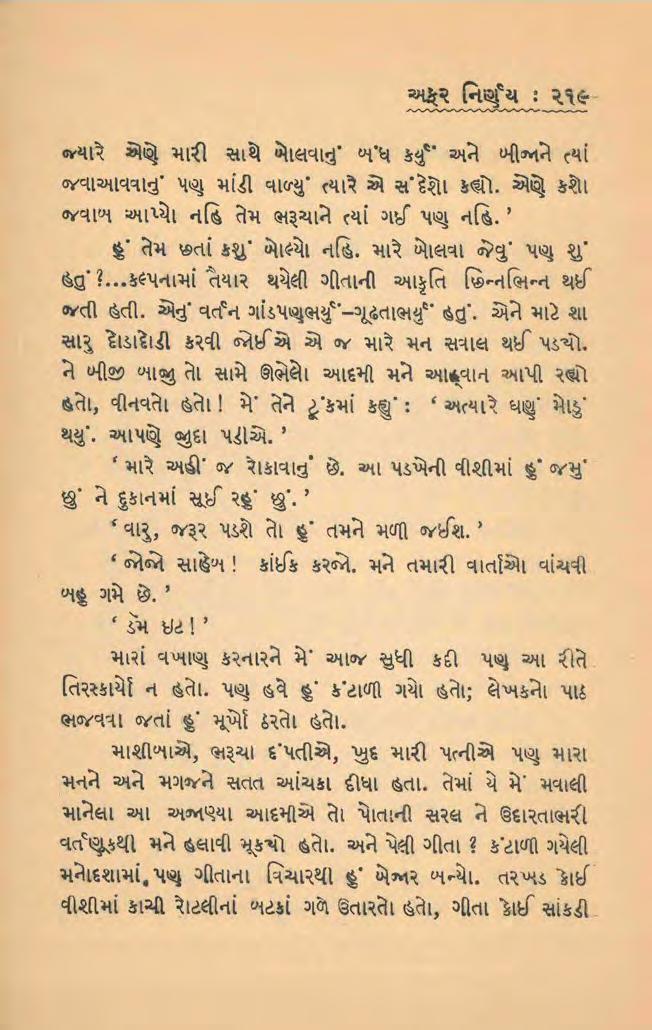 અફર નિર્ણય : ૨૧૯
જ્યારે એણે મારી સાથે બોલવાનું બંધ કર્યું અને બીજાને ત્યાં
જવાઆવવાનું પણ માંડી વાળ્યું ત્યારે એ સંદેશો કહ્યો. એણે કશો
જવાબ આપ્યો નહિ તેમ ભરૂચાને ત્યાં ગઈ પણ નહિ.’
હું તેમ છતાં કશું બોલ્યો નહિ. મારે બોલવા જેવું પણ શું
હતું ?...કલ્પનામાં તૈયાર થયેલી ગીતાની આકૃતિ છિન્નભિન્ન થઈ
જતી હતી. એનું વર્તન ગાંડપણભર્યું–ગૂઢતાભર્યું હતું. એને માટે શા
સારુ દોડાદોડી કરવી જોઈએ એ જ મારે મન સવાલ થઈ પડ્યો.
ને બીજી બાજુ તો સામે ઊભેલો આદમી મને આહ્‌વાન આપી રહ્યો
હતો, વીનવતો હતો! મેં તેને ટૂંકમાં કહ્યું : ‘અત્યારે ઘણું મોડું
થયું. આપણે જુદા પડીએ.’
‘મારે અહીં જ રોકાવાનું છે. આ પડખેની વીશીમાં હું જમું
છું ને દુકાનમાં સૂઈ રહું છું.’
‘વારુ, જરૂર પડશે તો હું તમને મળી જઈશ.’
‘જોજો સાહેબ! કાંઈક કરજો. મને તમારી વાર્તાઓ વાંચવી
બહુ ગમે છે.’
‘ડૅમ ઇટ!’
મારાં વખાણ કરનારને મેં આજ સુધી કદી પણ આ રીતે
તિરસ્કાર્યો ન હતો. પણ હવે હું કંટાળી ગયો હતો; લેખકનો પાઠ
ભજવવા જતાં હું મૂર્ખો ઠરતો હતો.
માશીબાએ, ભરૂચા દંપતીએ, ખુદ મારી પત્નીએ પણ મારા
મનને અને મગજને સતત આંચકા દીધા હતા. તેમાં યે મેં મવાલી
માનેલા આ અજાણ્યા આદમીએ તો પોતાની સરલ ને ઉદારતાભરી
વર્તણૂકથી મને હલાવી મૂક્યો હતો. અને પેલી ગીતા ? કંટાળી ગયેલી
મનોદશામાં પણ ગીતાના વિચારથી હું બેજાર બન્યો. તરખડ કોઈ
વીશીમાં કાચી રોટલીનાં બટકાં ગળે ઉતારતો હતો, ગીતા કોઈ સાંકડી